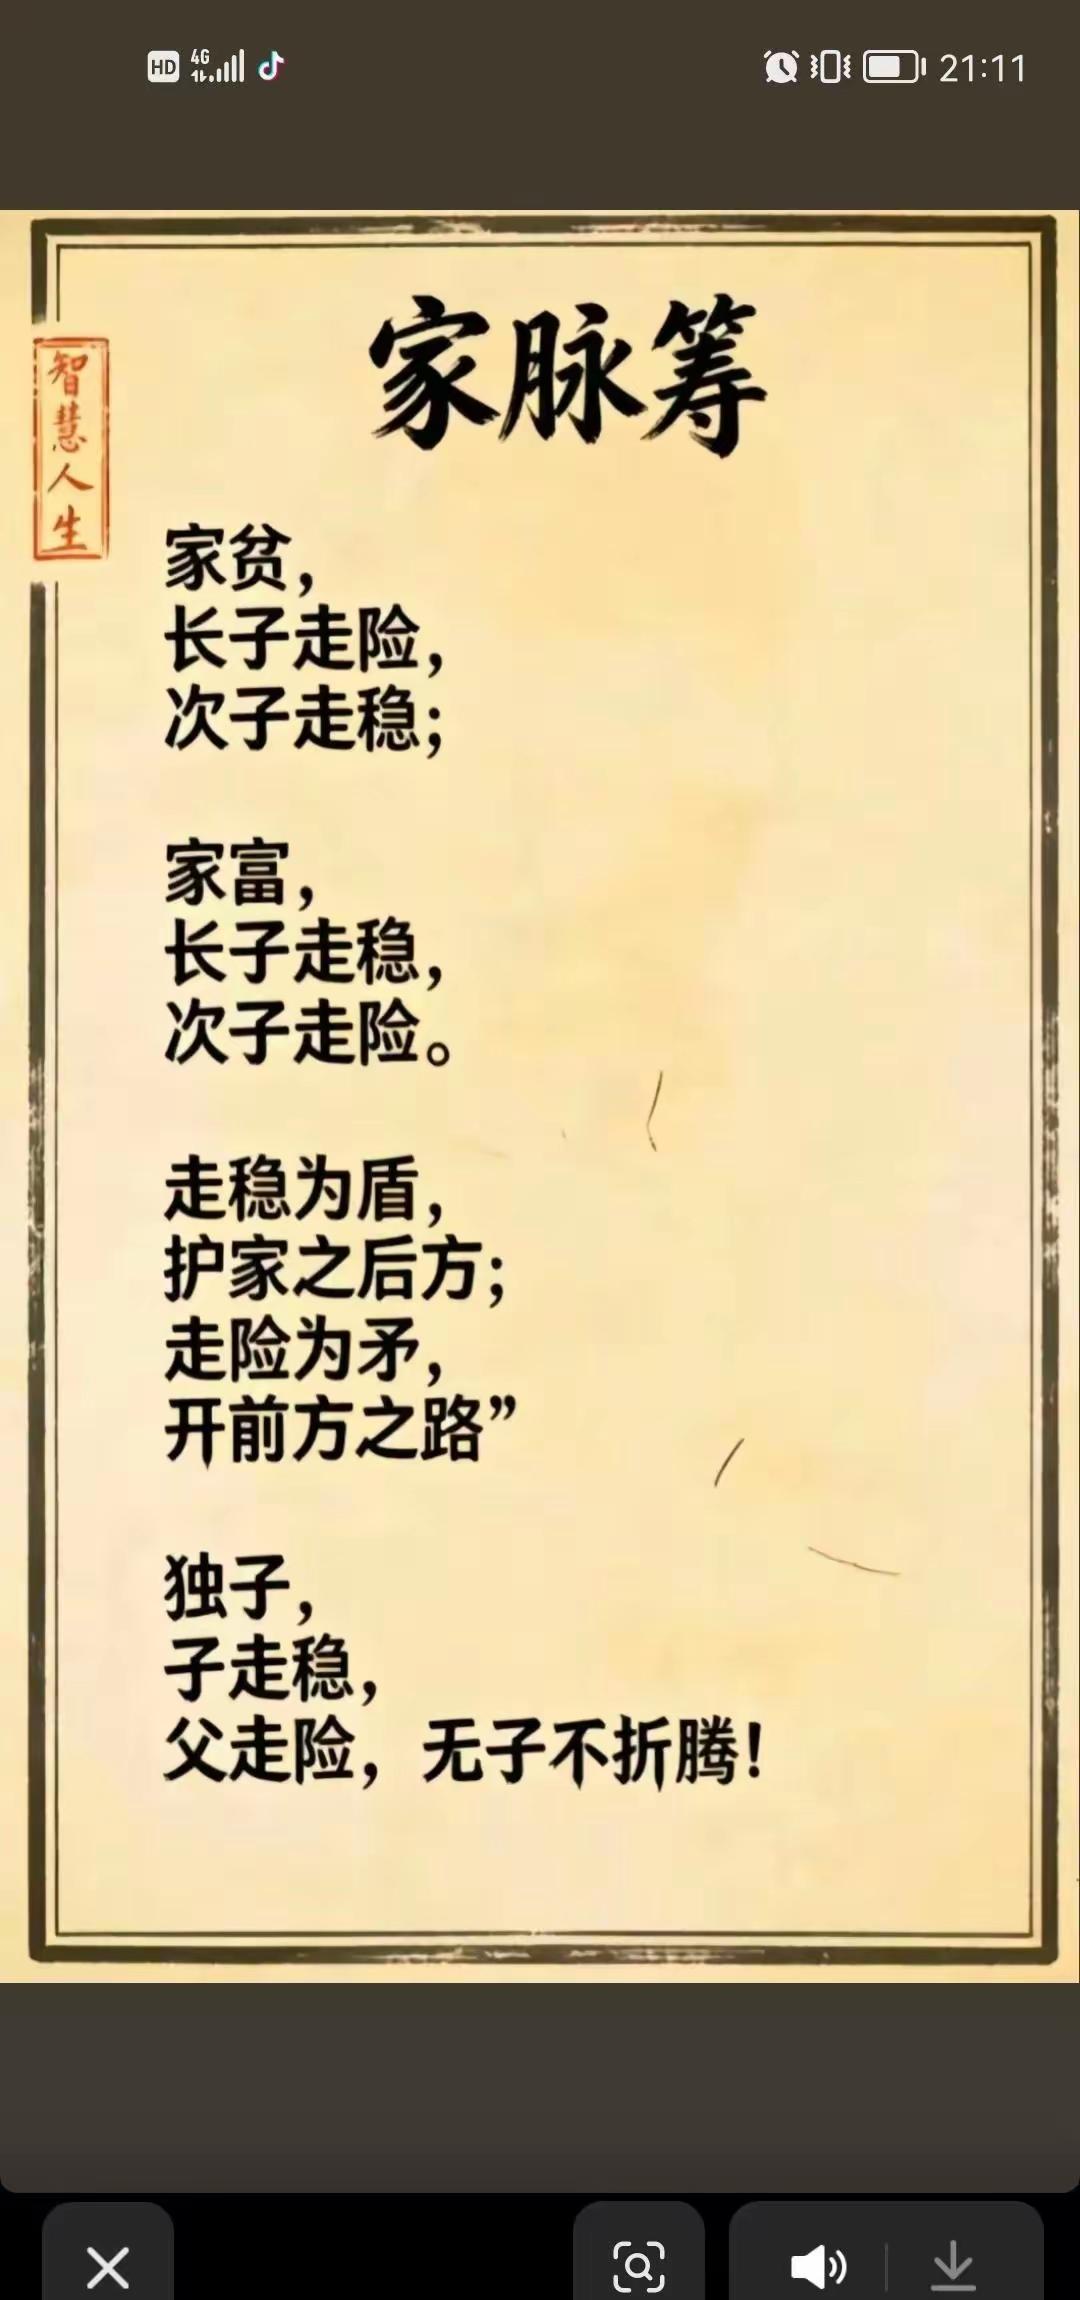 HD 4G 21:11
家脉筹
智慧人生
家贫，
长子走险，
次子走稳；
家富，
长子走稳，
次子走险。
走稳为盾，
护家之后方；
走险为矛，
开前方之路”
独子，
子走稳，
父走险，无子不折腾！